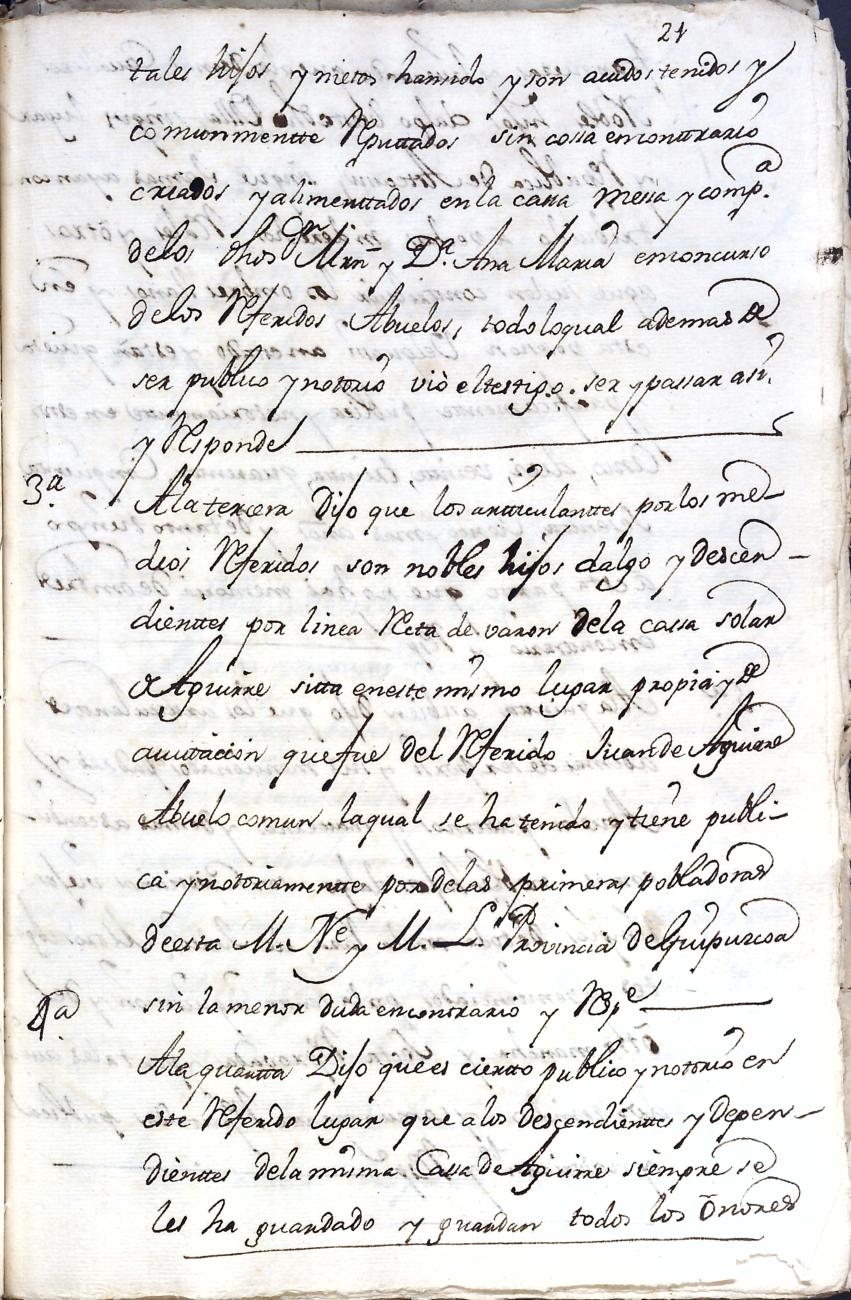 21
tales hijos y nietos han sido y son auidos tenidos y
comunmentte Reputtados sin cossa en conttrario
criados y alimenttados en la cassa messa y comp.ª
de los dhos Dn Mrn y D.ª Ana Maria en concurso
de los Referidos Abuelos, todo lo qual ademas de
ser publico y nottorio viò el testigo ser y passar asi,
y Responde
3ª
A la tercera Dijo que los artticulanttes por los me-
dios Referidos son nobles hijos dalgo y descen-
dienttes por linea Recta de varon de la cassa solar
de Aguirre sitta en este mismo lugar propia y de
auittacion que fue del Referido Juan de Aguirre
Abuelo comun la qual se ha tenido y tiene publi-
ca y notoriamentte por de las primeras pobladoras
de esta M. N.e y M. L. Provincia de Guipuzcoa
sin la menor duda en contrario y Rspe
4ª
A la quartta Dijo que es cierto publico y notorio en
este Referido lugar que a los descendienttes y depen-
dienttes de la misma Cassa de Aguirre siempre se
les ha guardado y guardan todos los onores